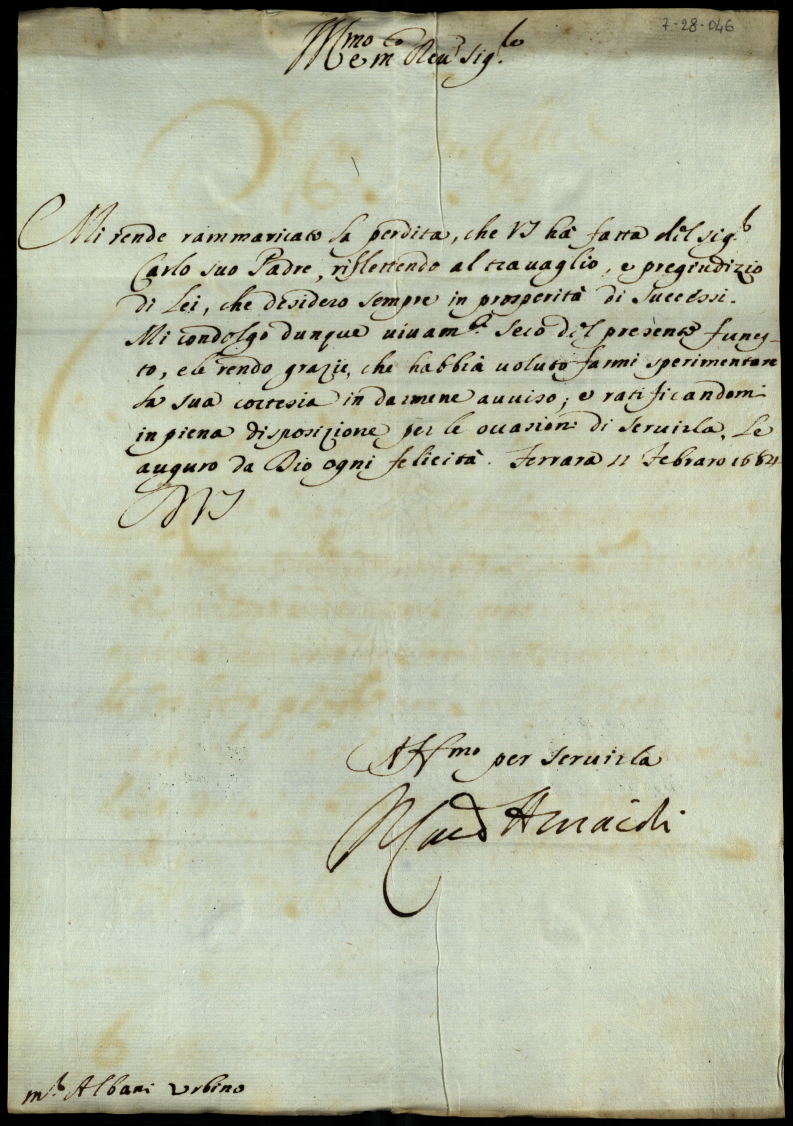 7-28-046
Ill.mo e m Reu.r Sig.re
Mi rende rammaricato la perdita, che VS hà fatta del sig.r
Carlo suo Padre, riflettendo al trauaglio, e pregiudizio
di Lei, che desidero sempre in prosperità di successi.
Mi condolgo dunque uiuam.te seco del presente funes-
to, e le rendo grazie, che habbia uoluto farmi sperimentare
la sua cortesia in darmene auuiso; e ratificandomi
in piena disposizione per le occasioni di seruirla, Le
auguro da Dio ogni felicità. Ferrara 11 Febraro 1684
DVS
Aff.mo per seruirla
m.r Albani Urbino